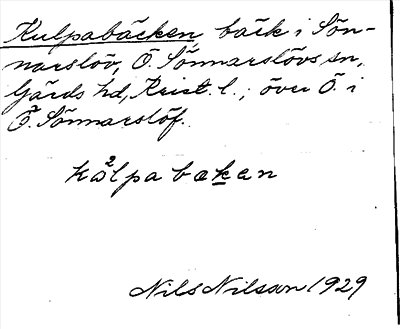 Kulpabäcken bäck i Sön-
narslöv, Ö. Sönnarslövs sn,
Gärds hd, Krist. l.; över Ö. i
Ö. Sönnarslöf.
kålpa bækan
Nils Nilsson 1929